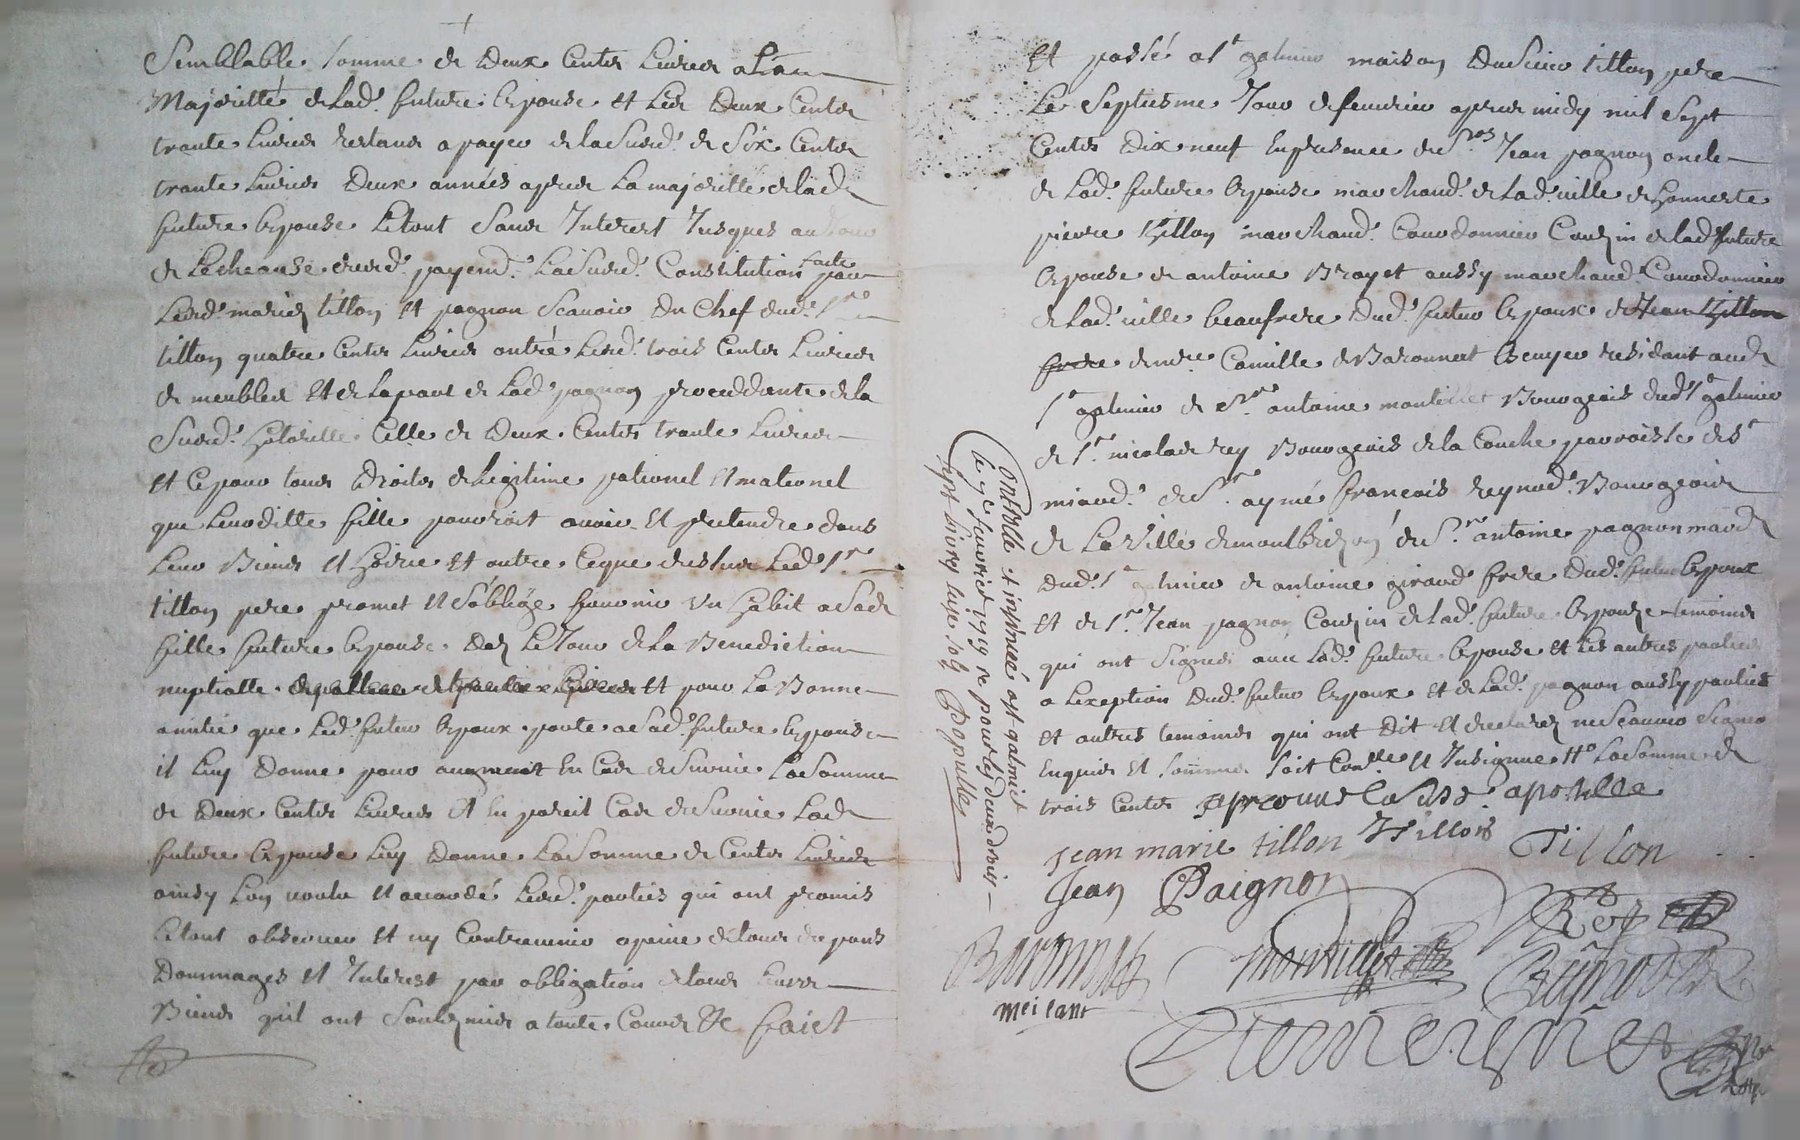 Semblable somme de deux Cents Livres a La
Majoritté de Lad. future Espouse et Les deux Cents
trante Livres restans a payer de la susd. de Six Cents
trante Livres deux années apres La majoritté de lad
future Espouse Letout sans Interest Jusques au
de Lecheanse desd. payemt. La susd. Constitution faite par
Lesd. mariez tillon et pagnon Scavoir du Chef dud. Sr
tillon quatre Cents Livres outre Lesd. trois Cents Livres
de meubles et de La part de Lad. pagnon proceddante de la
Susd. hoiritté Celle de deux Cents trante Livres
et Ce pour tous droits de Legitime paternel et maternel
que Leurditte fille pourroit avoir et pretendre dans
Leur Biens et hoirie et outre Ceque dessus Led. Sr
tillon pere promet et s'oblige fournir un habit a Sad
fille future Espouse dez Le Jour de La Benediction
nuptialle et pour La Bonne
amitié que Led. futur Espoux porte a Lad. future Espouse
il Luy donne pour augment En Cas de Survie La Somme
de deux Cents Livres et En pareil Cas de Survie Lad
future Espouse Luy donne La Somme de Cents Livres
ainsy Lon voulu et accordé Lesd. parties qui ont promis
Letout observer et ny Contrevenir a peine de tous despans
dommages et Interest par obligation de tous Leurs
Biens quil ont Soubzmis a toutes Cours &c faict
Et passé a St galmier maison du Sieur tillon pere
Le Septiesme Jour de fevrier apres midy mil Sept
Cents dix neuf En presence de Srs Jean pagnon oncle
de Lad. future Espouse marchand de Lad. ville
pierre tillon marchand Courdonnier Couzin de lad future
Espouse de antoine Broyet aussy marchand Courdonnier
de Lad. ville beaufrere dud. futur Espoux de Jean tillon
frere de mre Camille de Baronnat Escuyer residant aud
St galmier de Sr antoine montellet Bourgeois dud St galmier
de Sr. nicolas rey Bourgeois de la Couche parroisse de St
miard. de Sr. aymé francois reynod. Bourgeois
de La Ville de montbrizon de Sr antoine pagnon mard
dud. St galmier de antoine giraud frere dud. futur Espoux
Et de Sr. Jean pagnon Couzin de lad. future Espouze temoins
qui ont Signés avec Lad. future Espouse et Les autres parties
a Lexeption dud. futur Espoux et de Lad. pagnon aussy parties
et autres temoins qui ont dit et declarez ne Scavoir Signer
Enquis et sommés soit Conllé et Insignué La Somme de
trois Cents approuve La Susd. apostille
jean marie tillon tillon Tillon
Jean Paignon
Rey
Baronnat montellet Reynod
meilant
Controllé et insinué a st galmier
le 9e fevrier 1719 Rc pour les deux droits
sept livres